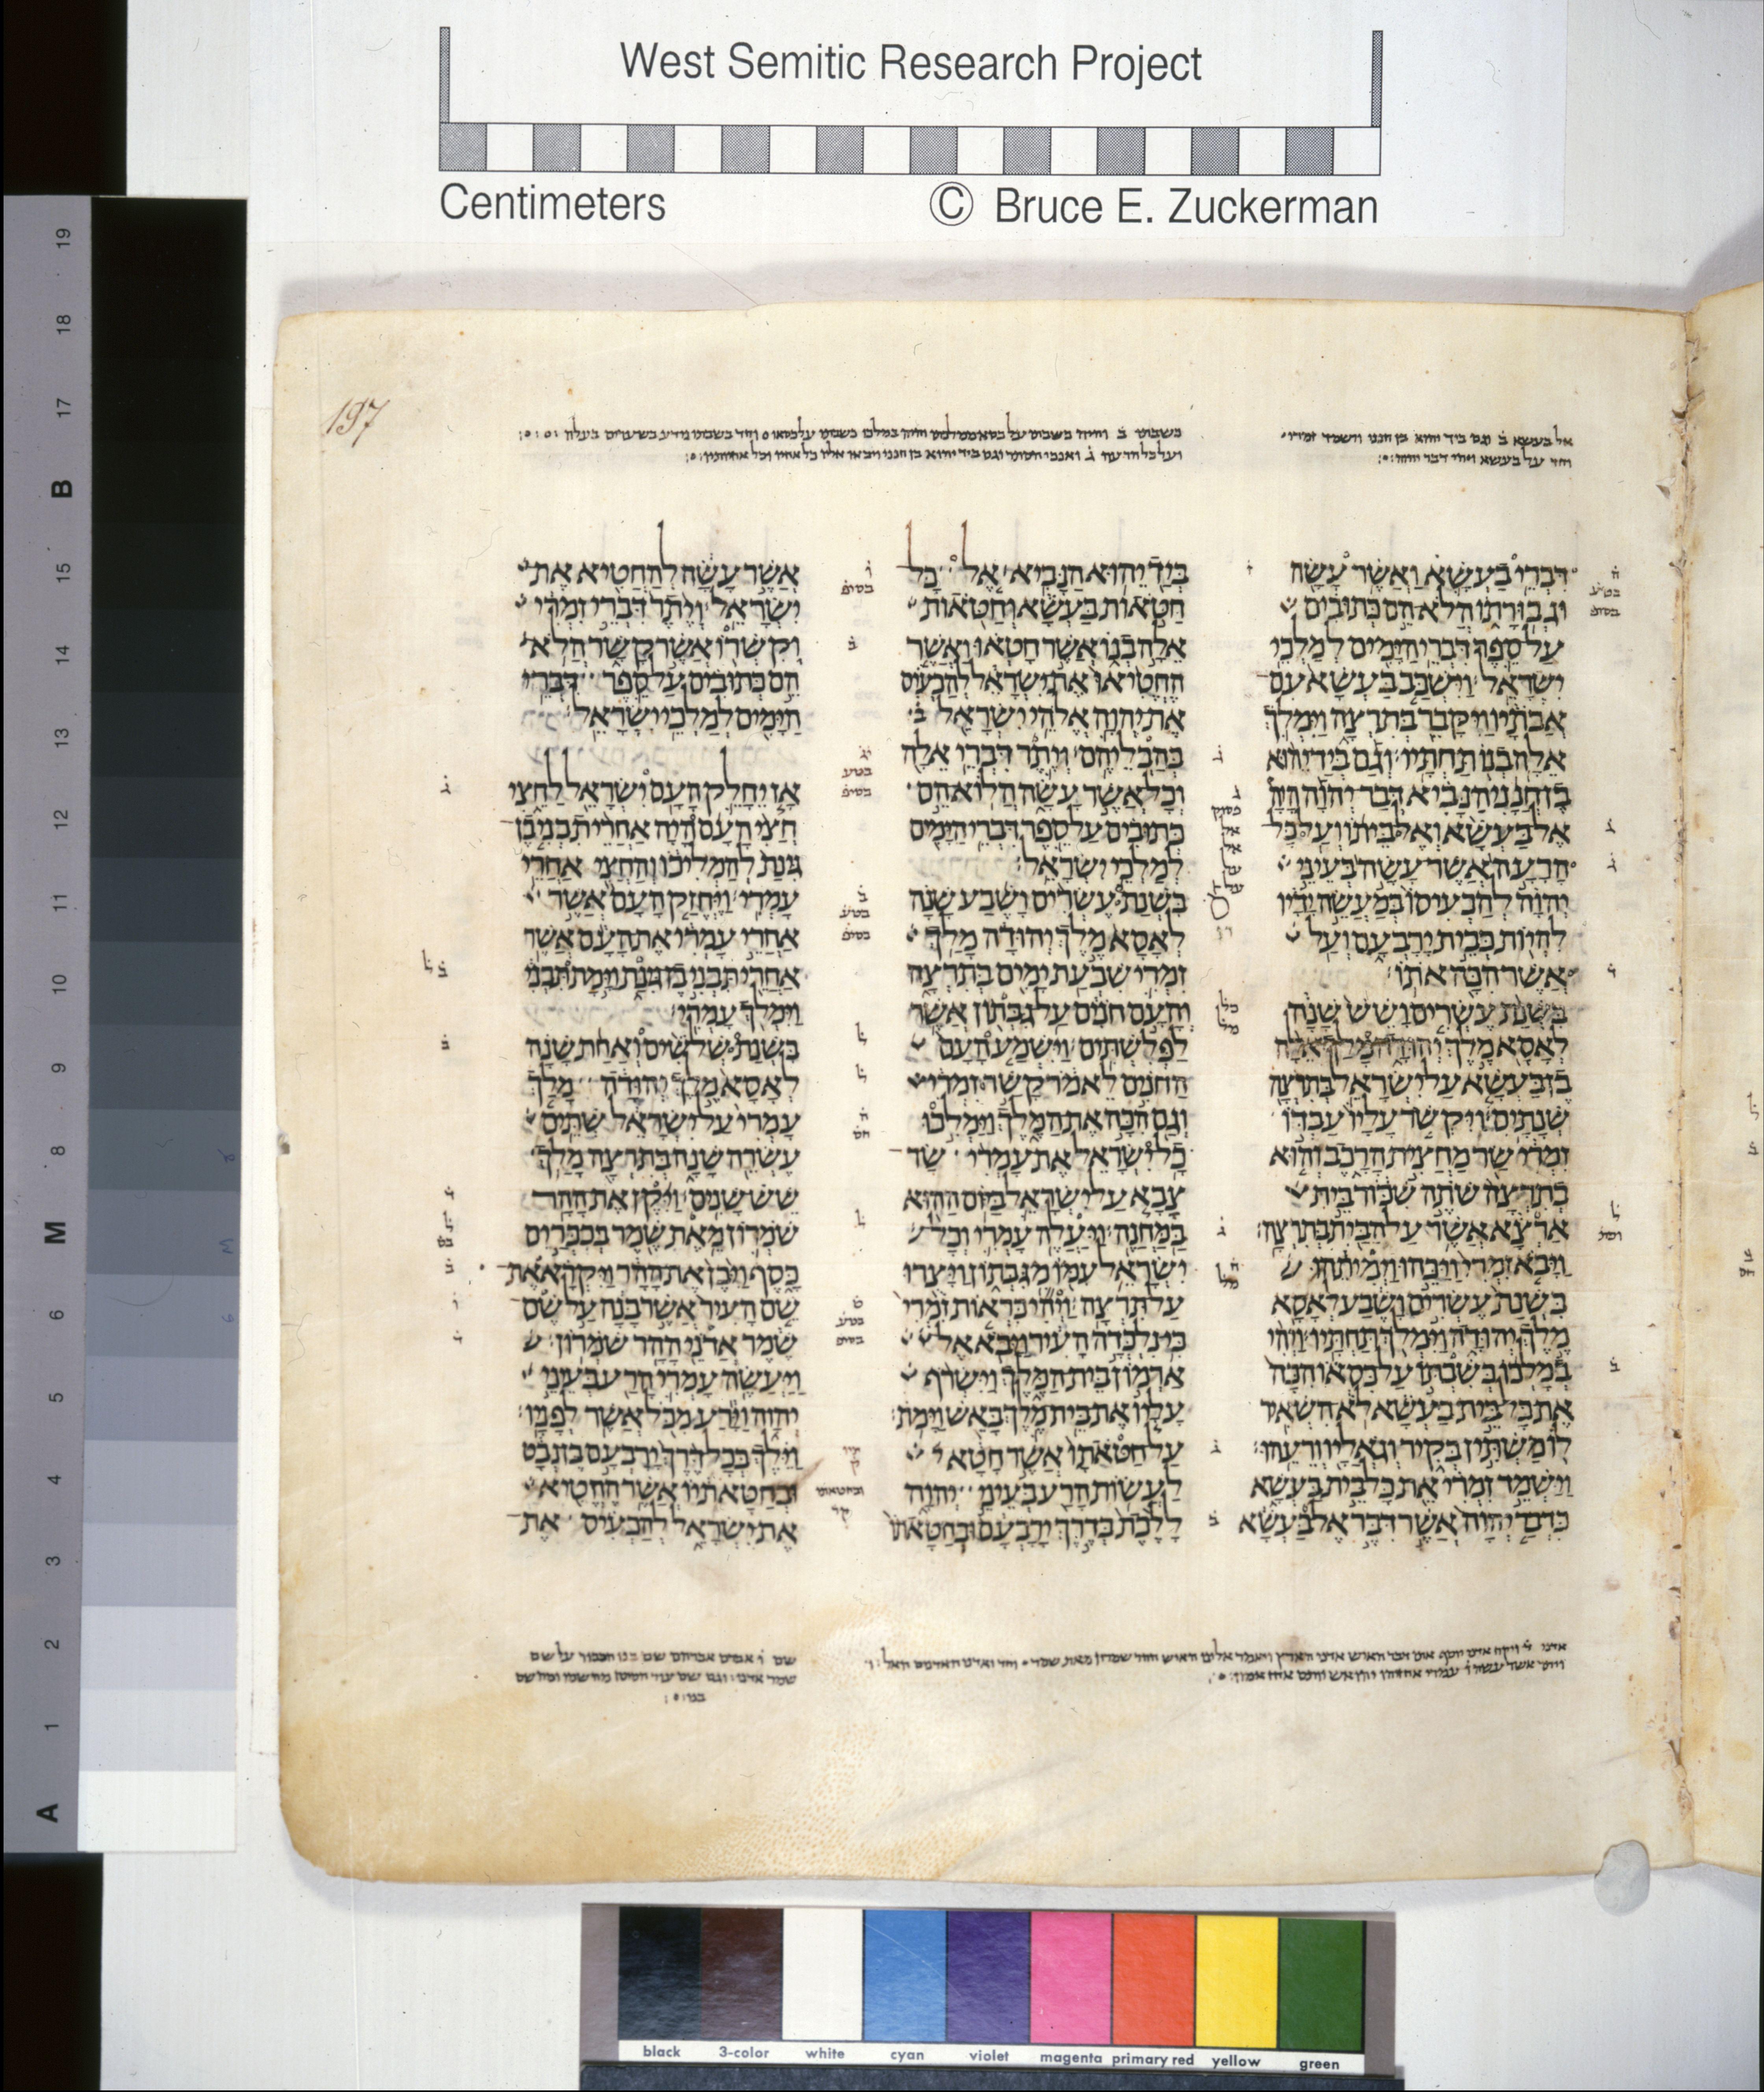 West Semitic Research Project
Centimeters © Bruce E. Zuckerman
197
אל בעשא ב וגם ביד יהוא בן חנני וישמד זמרי
וחד על בעשא ויהי דבר יהוה
דברי בעשא ואשר עשה
וגבורתו הלא הם כתובים
על ספר דברי הימים למלכי
ישראל׃ וישכב בעשא עם
אבתיו ויקבר בתרצה וימלך
אלה בנו תחתיו׃ וגם ביד יהוא
בן חנני הנביא דבר יהוה היה
אל בעשא ואל ביתו ועל כל
הרעה אשר עשה בעיני
יהוה להכעיסו במעשה ידיו
להיות כבית ירבעם ועל
אשר הכה אתו׃
בשנת עשרים ושש שנה
לאסא מלך יהודה מלך אלה
בן בעשא על ישראל בתרצה
שנתים׃ ויקשר עליו עבדו
זמרי שר מחצית הרכב והוא
בתרצה שתה שכור בית
ארצא אשר על הבית בתרצה׃
ויבא זמרי ויכהו וימיתהו
בשנת עשרים ושבע לאסא
מלך יהודה וימלך תחתיו׃ ויהי
במלכו כשבתו על כסאו הכה
את כל בית בעשא לא השאיר
לו משתין בקיר וגאליו ורעהו׃
וישמד זמרי את כל בית בעשא
כדבר יהוה אשר דבר אל בעשא
ביד יהוא הנביא׃ אל כל
חטאות בעשא וחטאות
אלה בנו אשר חטאו ואשר
החטיאו את ישראל להכעיס
את יהוה אלהי ישראל
בהבליהם׃ ויתר דברי אלה
וכל אשר עשה הלוא הם
כתובים על ספר דברי הימים
למלכי ישראל׃
בשנת עשרים ושבע שנה
לאסא מלך יהודה מלך
זמרי שבעת ימים בתרצה
והעם חנים על גבתון אשר
לפלשתים׃ וישמע העם
החנים לאמר קשר זמרי
וגם הכה את המלך וימלכו
כל ישראל את עמרי שר
צבא על ישראל ביום ההוא
במחנה׃ ויעלה עמרי וכל
ישראל עמו מגבתון ויצרו
על תרצה׃ ויהי כראות זמרי
כי נלכדה העיר ויבא אל
ארמון בית המלך וישרף
עליו את בית מלך באש וימת׃
על חטאתו אשר חטא
לעשות הרע בעיני יהוה
ללכת בדרך ירבעם ובחטאתו
אשר עשה להחטיא את
ישראל׃ ויתר דברי זמרי
וקשרו אשר קשר הלא
הם כתובים על ספר דברי
הימים למלכי ישראל׃
אז יחלק העם ישראל לחצי
חצי העם היה אחרי תבני בן
גינת להמליכו והחצי אחרי
עמרי׃ ויחזק העם אשר
אחרי עמרי את העם אשר
אחרי תבני בן גינת וימת תבני
וימלך עמרי׃
בשנת שלשים ואחת שנה
לאסא מלך יהודה מלך
עמרי על ישראל שתים
עשרה שנה בתרצה מלך
שש שנים׃ ויקן את ההר
שמרון מאת שמר בככרים
כסף ויבן את ההר ויקרא את
שם העיר אשר בנה על שם
שמר אדני ההר שמרון׃
ויעשה עמרי הרע בעיני
יהוה וירע מכל אשר לפניו׃
וילך בכל דרך ירבעם בן נבט
ובחטאתיו אשר החטיא
את ישראל להכעיס את
black 3-color white cyan violet magenta primary red yellow green
A 1 2 3 4 5 6 M 8 9 10 11 12 13 14 15 B 17 18 19